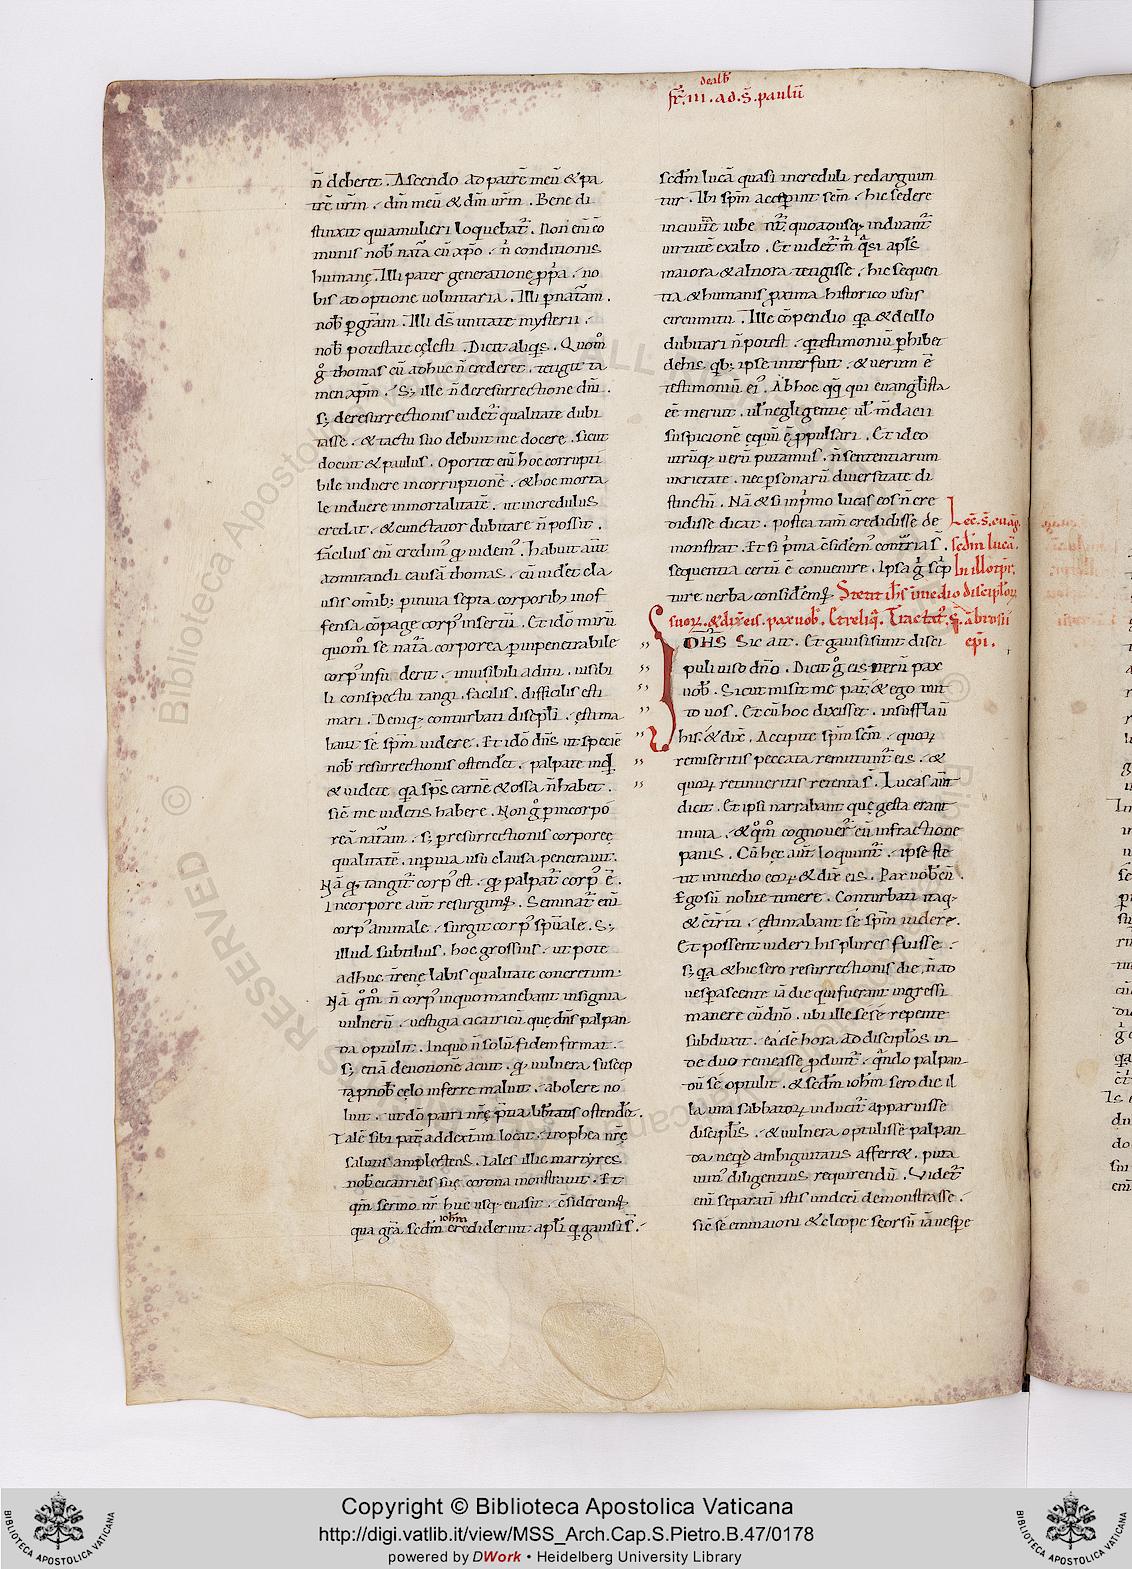 de alb̄
fr̄. iii. ad. S̄. paulū
n̄ deberet. Ascendo ad patrē meū & pa
trē ur̄m. dm̄ meū & dm̄ ur̄m. Bene di
stinxit quia mulieri loquebat̄. Non eni co
munis nob̄ nat̄a cū xp̄o. n̄ conditionis
humanę. Illi pater generatione pp̄a. no
bis adoptione uoluntaria. Illi p nat̄am.
nob̄ p gr̄am. Illi ds̄ unitate mysterii.
nob̄ potestate cęlesti. Dicit aliqs. Quom̊
g̊ thomas cū adhuc n̄ crederet. tetigit ta
men xp̄m. S; ille n̄ de resurrectione dn̄i.
s; de resurrectionis uidet̄ qualitate dubi
tasse. & tactu suo debuit me docere. sicut
docuit & paulus. Oportet eni hoc corrupti
bile induere incorruptionē. & hoc morta
le induere inmortalitatē. ut incredulus
credat. & cunctator dubitare n̄ possit.
Facilius eni credim' qd̄ uidem'. Habuit aut̄
admirandi causā thomas. cū uidet̄ cla
usis omib; p inuia septa corporibus inof
fensa cōpage corp' insertū. Et idō mirū
quom̊ se nat̄a corporea p inpenetrabile
corp' infuderit. inuisibili aditu. uisibi
li conspectu tangi. facilis. difficilis esti
mari. Deniq; conturbati discipl̄i. ęstima
bant se sp̄m uidere. Et idō dn̄s ut speciē
nob̄ resurrectionis ostendet̄. palpate inqd
& uidete qa sp̄s carnē & ossa n̄ habet.
sic̄ me uidetis habere. Non g̊ p incorpo
reā nat̄am. s; p resurrectionis corporeę
qualitatē. inpuia usu clausa penetrauit.
Nā qd̄ tangit̄ corp' est. qd̄ palpat̄ corp' ē.
Incorpore aut̄ resurgim'. Seminat̄ eni
corp' animale. surgit corp' spūale. S;
illud subtilius. hoc grossius. ut pote
adhuc terrenę labis qualitate concretum.
Nā qm̊ n̄ corp' in quo manebant insignia
uulnerū. uestigia cicatricū quę dn̄s palpan
da optulit. In quo n̄ solū fidem firmat.
s; etiā deuotionē acuit. qd̄ uulnera suscep
ta p nob̄ cęlo inferre maluit. abolere no
luit. ut dō patri nr̄ę pr̄tia libtatis ostendet̄.
Talē sibi pat̄ ad dextram locat. trophea nr̄ę
salutis amplectens. tales illic martyres
nob̄ cicatricis suę corona monstrauit. Et
qm̄ sermo nr̄ huc usq; euasit. c̄siderem'
ioh̄m
qua gr̄a sedm̄ crediderint apl̄i q gauisi s̄.
sedm̄ lucā quasi increduli redarguun
tur. Ibi sp̄m acceperint scm̄. hic sedere
in ciuitate iubent̄. quoadusq; induant̄
uirtutē ex alto. Et uidet̄ m̄ qsi apl̄s
maiora & altiora tetigisse. hic sequen
tia & humanis proxima historico usus
circuitu. Ille cōpendio qa & de illo
dubitari n̄ potest. q testimoniū phibet
de his qb; ipse interfuit. & uerum ē
testimoniū ei'. Ab hoc qq qui euanglista
eē meruit. ul̄ negligentię ul̄ mdacii
suspicionē ęquū ē ppulsari. Et ideo
utrūq; uerū putamus. n̄ sententiarum
uarietate. nec personarū diuersitate di
stinctū. Nā & si in pmo lucas eos n̄ cre
didisse dicat. postea tam̄ credidisse de
monstrat. Et si pma c̄sidem' contraria s̄.
sequentia certū ē conuenire. Ipsa g̊ scp
ture uerba considem'.
Lec̄. S̄. euāg.
sedm̄ lucā.
In illo tpr̄.
Stetit ih̄s in medio discipulorꝝ
suorꝝ. & dix̄ eis. pax uob̄. Et reliq̄. Tractat̄. S̄. ambrosii
ep̄i.
IOH̄S Sic ait. Et gauisi sunt disci
puli uiso dn̄o. Dicit g̊ eis iterū pax
uob̄. Sicut misit me pat̄. & ego mit
to uos. Et cū hoc dixisset. insufflauit
his. & dix̄. Accipite sp̄m scm̄. quorꝝ
remiseritis peccata remittunt̄ eis. &
quorꝝ retinueritis retenta s̄. Lucas aut̄
dicit. Et ipsi narrabant quę gesta erant
in uia. & qm̊ cognouer̄ eū in fractione
panis. Cū hęc aut̄ loquunt̄. ipse ste
tit in medio eorꝝ & dix̄ eis. Pax uob̄cū.
Ego sū nolite timere. Conturbati itaq;
& ct̄riti. ęstimabant se sp̄m uidere.
Et possent uideri his plures fuisse.
s; qa & hic sero resurrectionis die. n̄ ad
uesperascente iā die qui fuerant ingressi
manere cū dn̄o. ubi ille sese repente
subduxit. eadē hora ad discipl̄os in
de duo remeasse produnt̄. qndo palpan
dū se optulit. & sedm̄ ioh̄m sero die il
la una sabbatorꝝ inducit̄ apparuisse
discipl̄is. & uulnera optulisse palpan
da ne qd ambiguitatis afferre. puta
uim' diligentius requirendū. Videt̄
eni separatū istis undeci demonstrasse.
sic̄ se emmaioni & cleope seorsū iā uespere
Copyright © Biblioteca Apostolica Vaticana
http://digi.vatlib.it/view/MSS_Arch.Cap.S.Pietro.B.47/0178
powered by DWork • Heidelberg University Library